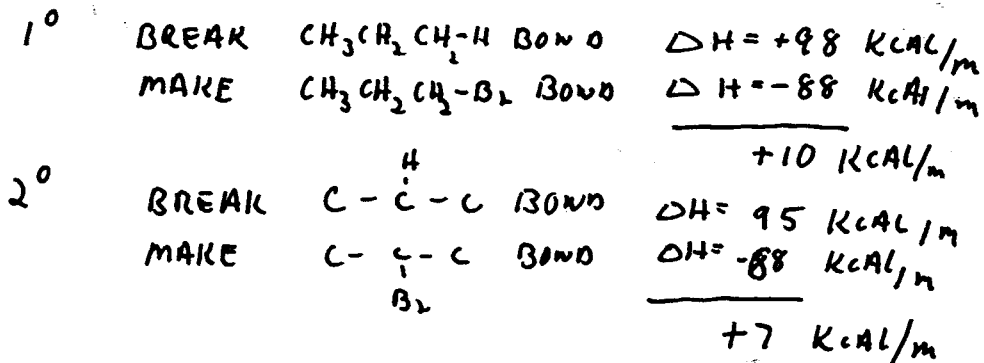 1° BREAK CH₃CH₂CH₂-H BOND ΔH = +98 KCAL/m
MAKE CH₃CH₂CH₂-Br BOND ΔH = -88 KCAl/m
+10 KCAL/m
H
2° BREAK C - C - C BOND ΔH = 95 KCAL/m
MAKE C - C - C BOND ΔH = -88 KCAL/m
Br
+7 KCAL/m